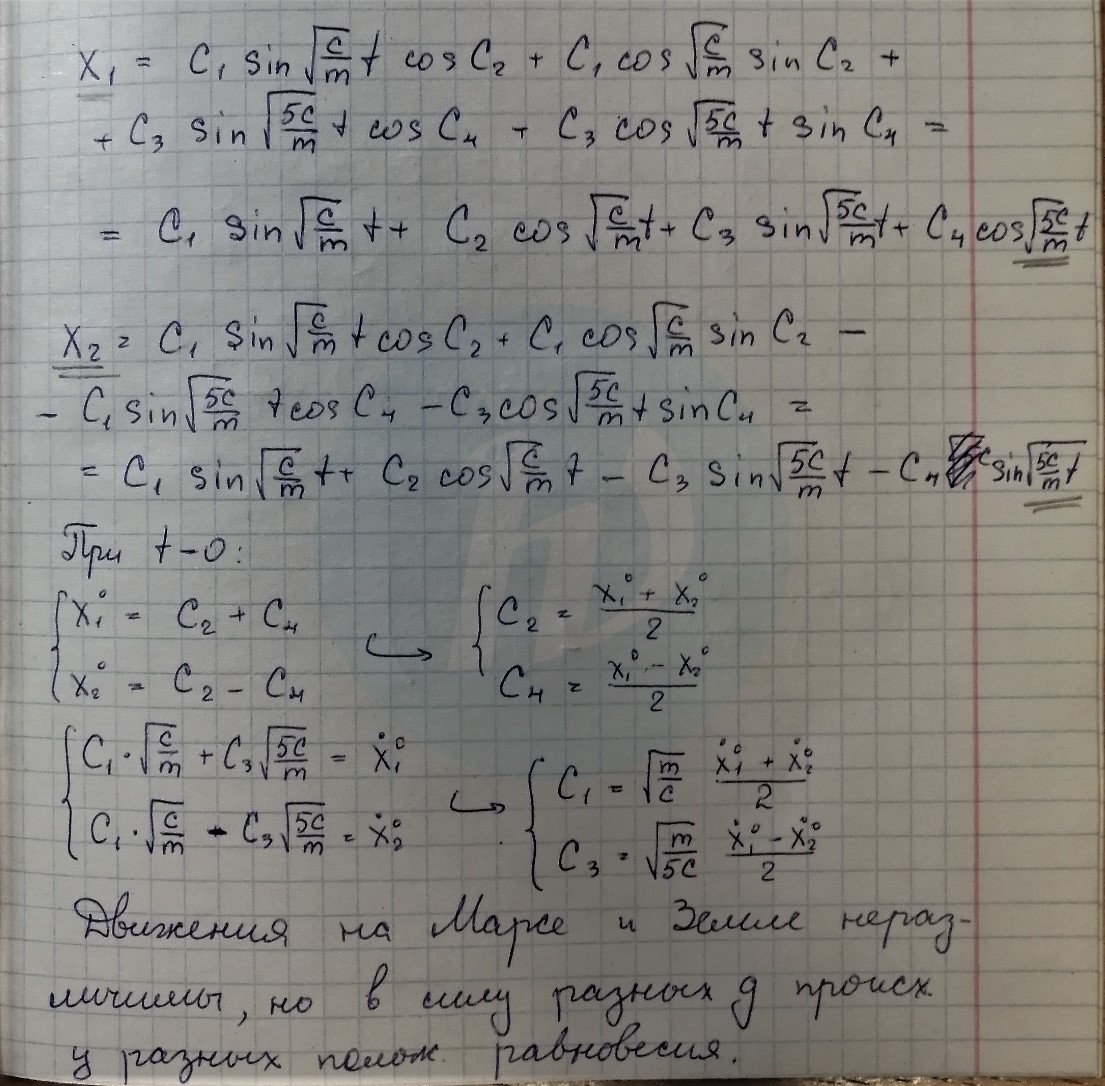 X₁ = C₁ sin√(c/m) t cos C₂ + C₁ cos√(c/m) sin C₂ +
+ C₃ sin√(5c/m) t cos C₄ + C₃ cos√(5c/m) t sin C₄ =
= C₁ sin√(c/m) t + C₂ cos√(c/m) t + C₃ sin√(5c/m) t + C₄ cos√(5c/m) t
X₂ = C₁ sin√(c/m) t cos C₂ + C₁ cos√(c/m) sin C₂ −
− C₁ sin√(5c/m) t cos C₄ − C₃ cos√(5c/m) t sin C₄ =
= C₁ sin√(c/m) t + C₂ cos√(c/m) t − C₃ sin√(5c/m) t − C₄ sin√(5c/m) t
При t−0:
{ x₁⁰ = C₂ + C₄ ↪ { C₂ = (x₁⁰ + x₂⁰)/2
x₂⁰ = C₂ − C₄ C₄ = (x₁⁰ − x₂⁰)/2
{ C₁·√(c/m) + C₃√(5c/m) = ẋ₁⁰ ↪ { C₁ = √(m/c) (ẋ₁⁰ + ẋ₂⁰)/2
C₁·√(c/m) − C₃√(5c/m) = ẋ₂⁰ C₃ = √(m/5c) (ẋ₁⁰ − ẋ₂⁰)/2
Движения на Марсе и Земле нераз-
личимы, но в силу разных g происх.
у разных полож. равновесия.